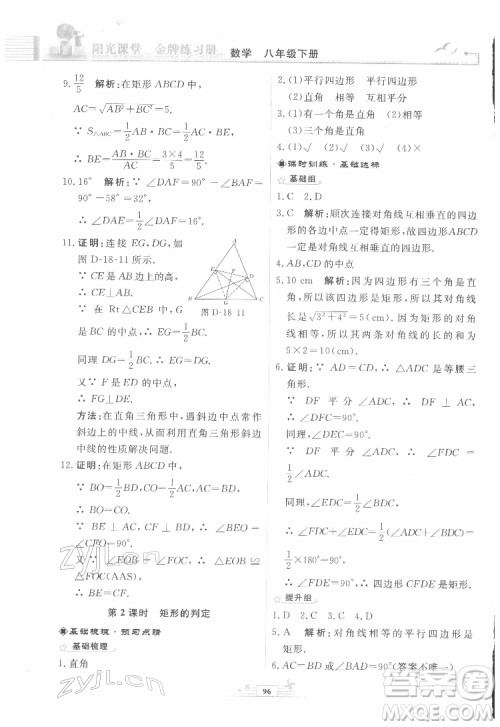 阳光课堂 金牌练习册 数学 八年级下册
9. 12/5 解析：在矩形 ABCD 中
AC=√(AB²+BC²)=5
∵ S△ABC=1/2 AB·BC=1/2 AC·BE
∴ BE=(AB·BC)/AC=(3×4)/5=12/5
10. 16° 解析：∵ ∠DAF=90°-∠BAF
=90°-58°=32°
∴ ∠DAE=1/2∠DAF=16°
11. 证明：连接 EG、DG，如
图 D-18-11
∵ CE 是 AB 上的高，
∴ CE⊥AB
∵ 在 Rt△CEB 中，G
是 BC 的中点
图 D-18-11
∴ EG=1/2BC
同理 DG=1/2BC ∴ EG=DG
又∵ F 是 DE 的中点
∴ FG⊥DE
方法：在直角三角形中，遇斜边中点常作
斜边上的中线，从而运用直角三角形斜边
上的中线性质解决问题.
12. 证明：在矩形 ABCD 中
∵ BO=1/2BD，CO=1/2AC，AC=BD
∴ BO=CO.
又∵ ∠BEO=∠CFO=90°
∠BOE=∠COF ∴ △BOE≌
△COF(AAS) ∴ BE=CF
第 2 课时 矩形的判定
基础梳理·预习点睛
基础梳理
1. 直角
2. (1)平行四边形 (2)相等
3. (1)平行四边形 直角 (2)平行四边形 相等
(3)有三个角是直角
4. (1)√ (2)× (3)√
课时训练·基础达标
基础组
1. C 2. D
3. C 解析：顺次连接对角线互相垂直的四边形
的各边中点一定是矩形，故原四边形的对角
线一定互相垂直.
4. AB、CD 的中点
5. 10 cm 解析：因为四边形有三个角是直
角，所以四边形是矩形，所以一条对角线
长是√(3²+4²)=5(cm)，又因为矩形的对角
线相等，所以其两条对角线长的和是
5×2=10(cm).
6. 证明：∵ AD=CD，∴ △ADC 是等腰三
角形. ∵ DF 平分 ∠ADC ∴ DF⊥
AC，∴ ∠DFC=90°. ∵ DE 平分
∠BDC，同理：∠DEC=90° ∵ ∠FDC=
1/2∠ADC，∠CDE=1/2∠CDB，
∴ ∠FDE=∠FDC+∠CDE=1/2
(∠ADC+∠CDB)=1/2×180°=90°
∴ 四边形 CFDE 是矩形.
提升组
1. D 2. D 3. A 4. D
5. A 解析：对角线相等的平行四边形是矩
形.
6. ∠BAC=90°(答案不唯一)
96
zyjl.cn
zyjl.cn